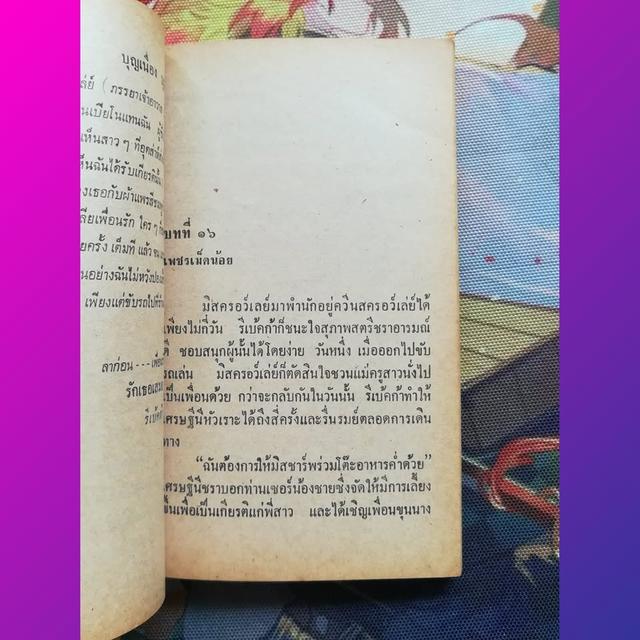 บุญเนื่อง
(ภรรยาเจ้าอาวาส
นเปียโนแทนฉัน
เห็นสาว ๆ ที่อุตส่าห์
ห็นฉันได้รับเกียรติ
งเธอกับผ้าแพร
สียเพื่อนรัก ใคร ๆ
ยครั้ง เต็มที แล้ว
นอย่างฉันไม่หวัง
เพียงแต่ขับรถไป
ลาก่อน --- เพื่อน
รักเธอเสมอ
บทที่ ๑๖
เพชรเม็ดน้อย
มิสครอว์เลย์มาพำนักอยู่ควีนสครอว์เล่ย์ได้
เพียงไม่กี่วัน รีเบ้คก้าก็ชนะใจสุภาพสตรีชราอารมณ์
ดี ชอบสนุกผู้นั้นได้โดยง่าย วันหนึ่ง เมื่อออกไปขับ
รถเล่น มิสครอว์เล่ย์ก็ตัดสินใจชวนแม่ครูสาวนั่งไป
เป็นเพื่อนด้วย กว่าจะกลับกันในวันนั้น รีเบ้คก้าทำให้
เศรษฐีนีหัวเราะได้ถึงสี่ครั้งและรื่นรมย์ตลอดการเดิน
ทาง
“ฉันต้องการให้มิสชาร์พร่วมโต๊ะอาหารค่ำด้วย”
เศรษฐีนีชราบอกท่านเซอร์น้องชายซึ่งจัดให้มีการเลี้ยง
ขึ้นเพื่อเป็นเกียรติแก่พี่สาว และได้เชิญเพื่อนขุนนาง